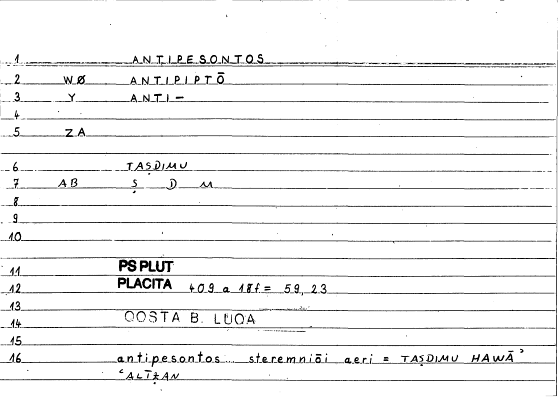 1 ANTIPESONTOS
2 WØ ANTIPIPTŌ
3 Y ANTI-
4
5 ZA
6 TAṢDIMU
7 AB Ṣ D M
8
9
10
11 PS PLUT
12 PLACITA 409 a 18f = 59, 23
13
14 QOSTA B. LUQA
15
16 antipesontos steremniōi aeri = TAṢDIMU HAWĀʾ
ʿALĪẒAN